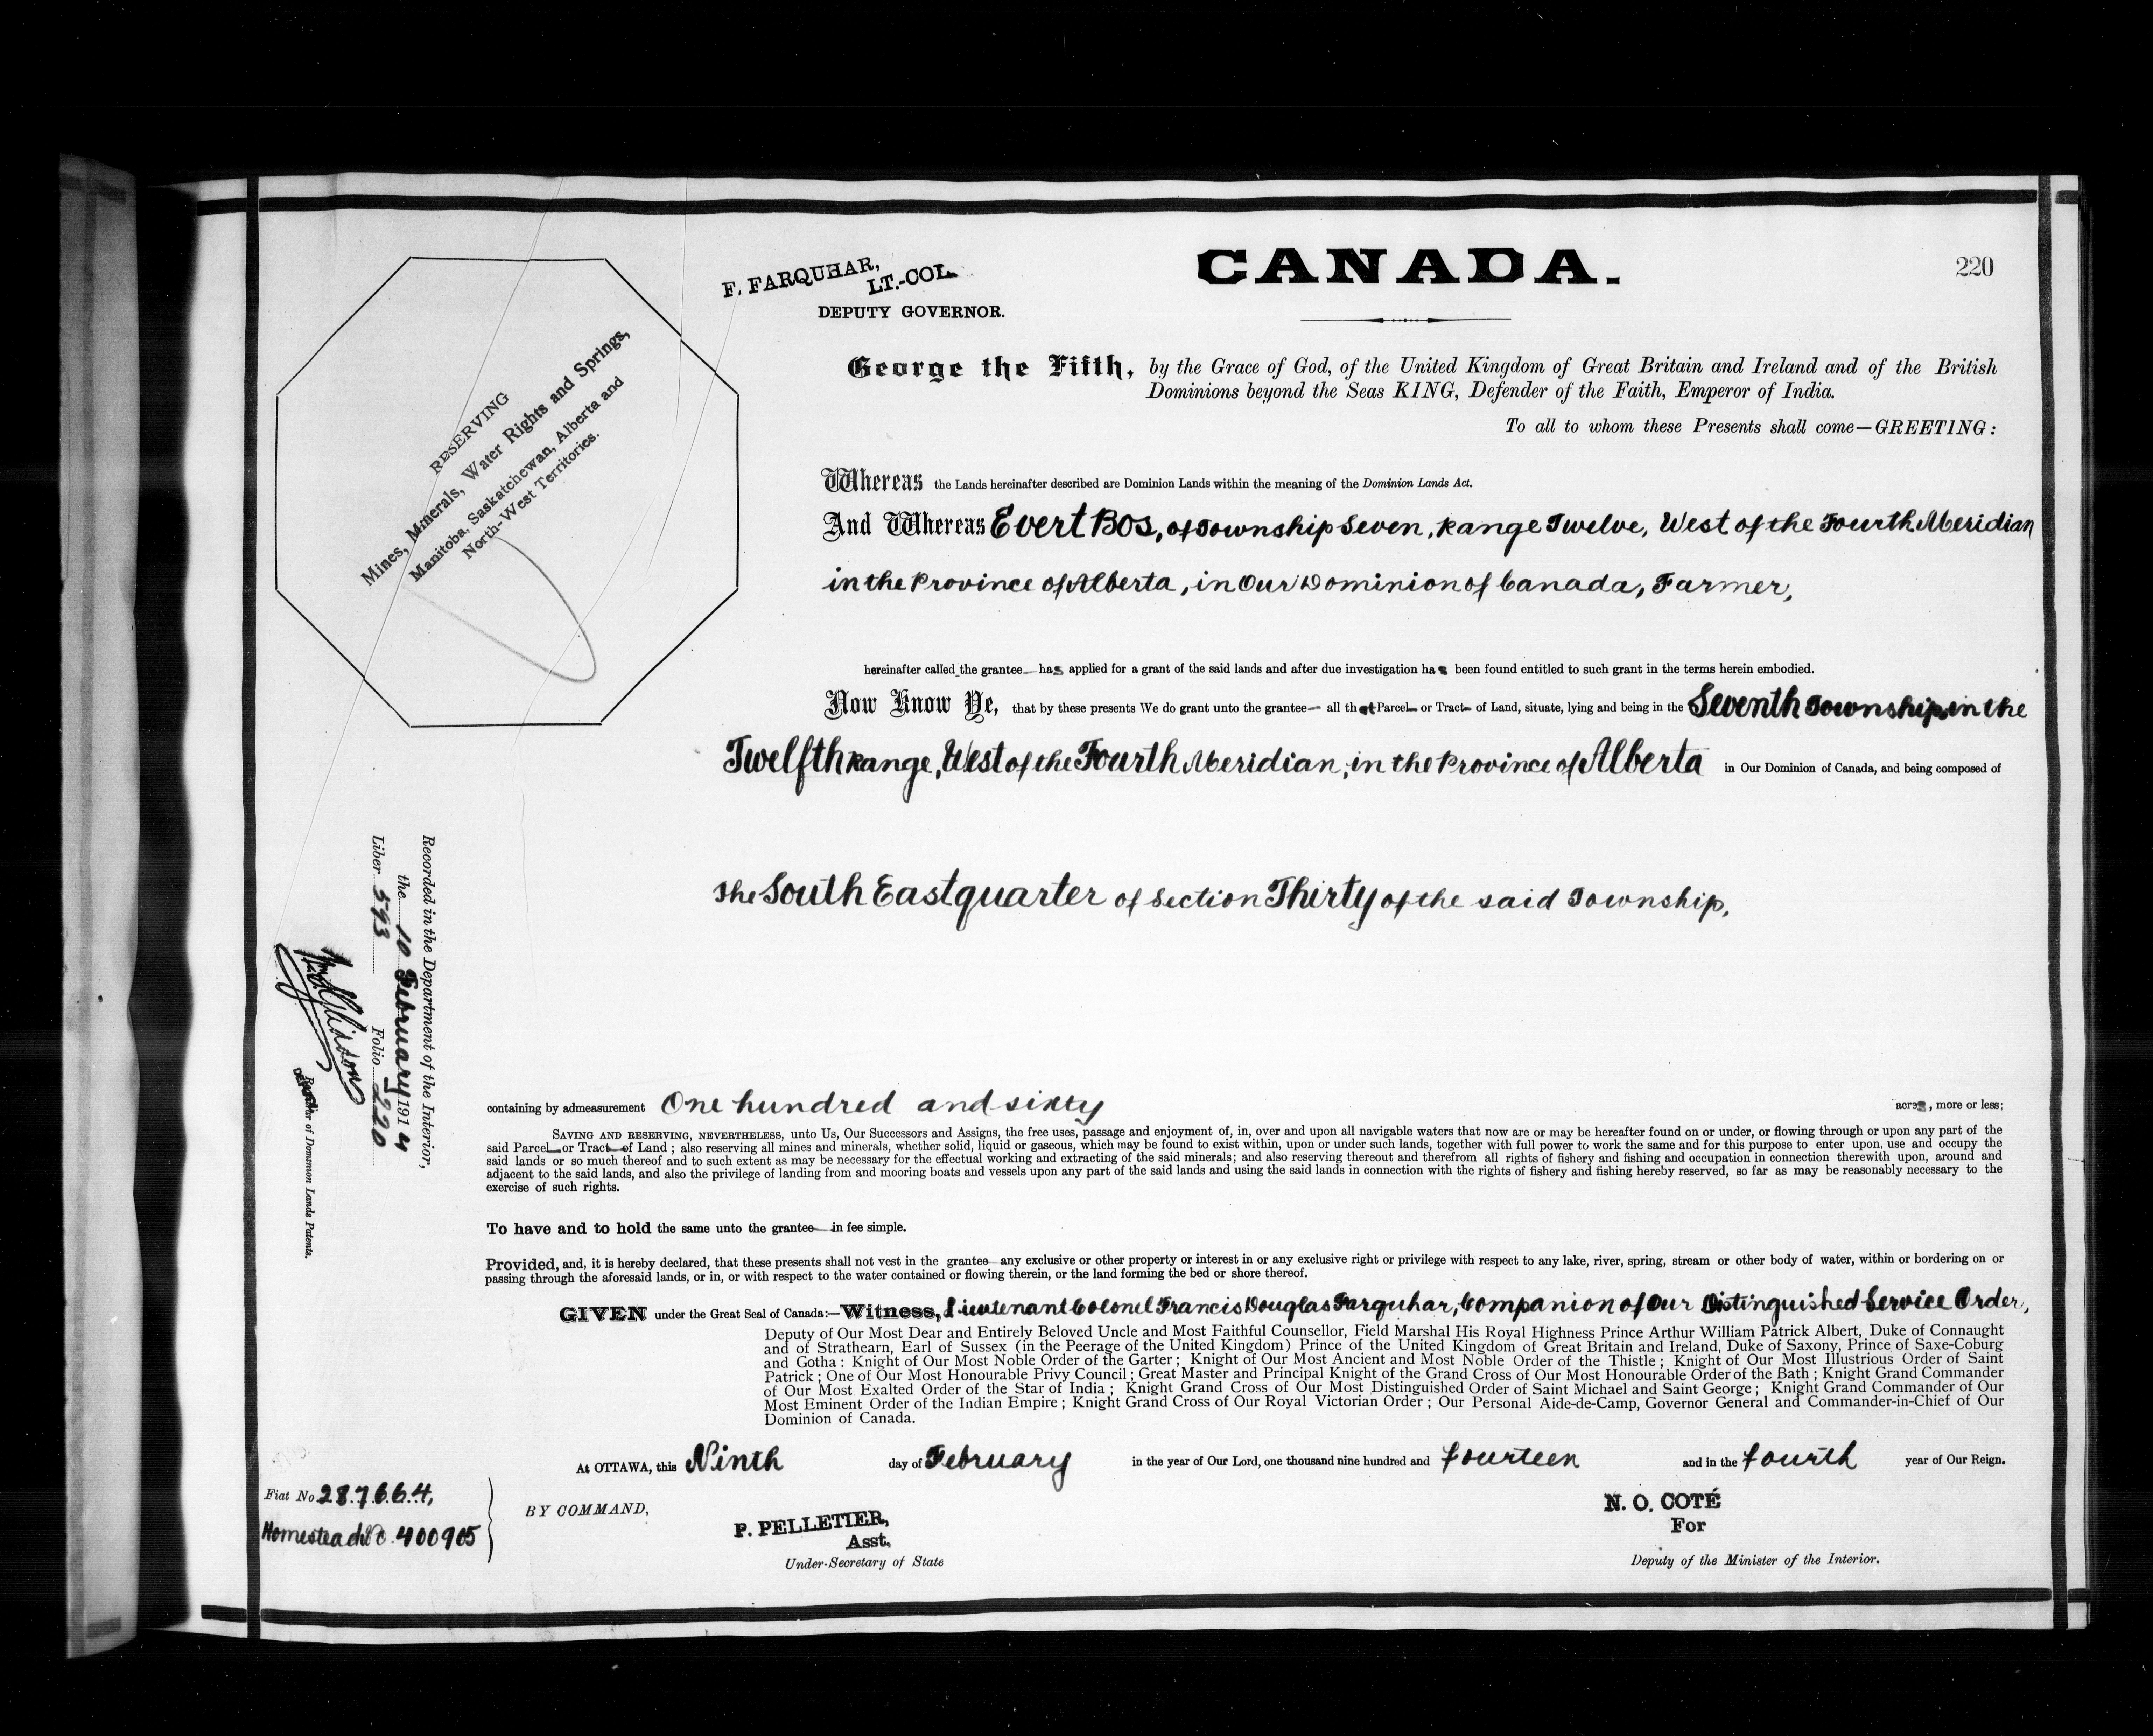 220
CANADA.
F. FARQUHAR,
LT.-COL.
DEPUTY GOVERNOR.
RESERVING
Mines, Minerals, Water Rights and Springs,
Manitoba, Saskatchewan, Alberta and
North-West Territories.
George the Fifth, by the Grace of God, of the United Kingdom of Great Britain and Ireland and of the British
Dominions beyond the Seas KING, Defender of the Faith, Emperor of India.
To all to whom these Presents shall come—GREETING:
Whereas the Lands hereinafter described are Dominion Lands within the meaning of the Dominion Lands Act.
And Whereas Evert Bos, of Township Seven, Range Twelve, West of the Fourth Meridian
in the Province of Alberta, in Our Dominion of Canada, Farmer,
hereinafter called the grantee has applied for a grant of the said lands and after due investigation has been found entitled to such grant in the terms herein embodied.
Now Know Ye, that by these presents We do grant unto the grantee— all that Parcel or Tract of Land, situate, lying and being in the Seventh Township, in the
Twelfth Range, West of the Fourth Meridian, in the Province of Alberta in Our Dominion of Canada, and being composed of
The South East quarter of Section Thirty of the said Township,
containing by admeasurement One hundred and sixty acres, more or less;
SAVING AND RESERVING, NEVERTHELESS, unto Us, Our Successors and Assigns, the free uses, passage and enjoyment of, in, over and upon all navigable waters that now are or may be hereafter found on or under, or flowing through or upon any part of the
said Parcel or Tract of Land; also reserving all mines and minerals, whether solid, liquid or gaseous, which may be found to exist within, upon or under such lands, together with full power to work the same and for this purpose to enter upon, use and occupy the
said lands or so much thereof and to such extent as may be necessary for the effectual working and extracting of the said minerals; and also reserving thereout and therefrom all rights of fishery and fishing and occupation in connection therewith upon, around and
adjacent to the said lands, and also the privilege of landing from and mooring boats and vessels upon any part of the said lands and using the said lands in connection with the rights of fishery and fishing hereby reserved, so far as may be reasonably necessary to the
exercise of such rights.
To have and to hold the same unto the grantee in fee simple.
Provided, and, it is hereby declared, that these presents shall not vest in the grantee any exclusive or other property or interest in or any exclusive right or privilege with respect to any lake, river, spring, stream or other body of water, within or bordering on or
passing through the aforesaid lands, or in, or with respect to the water contained or flowing therein, or the land forming the bed or shore thereof.
GIVEN under the Great Seal of Canada:—Witness, Lieutenant Colonel Francis Douglas Farquhar, Companion of Our Distinguished Service Order,
Deputy of Our Most Dear and Entirely Beloved Uncle and Most Faithful Counsellor, Field Marshal His Royal Highness Prince Arthur William Patrick Albert, Duke of Connaught
and of Strathearn, Earl of Sussex (in the Peerage of the United Kingdom) Prince of the United Kingdom of Great Britain and Ireland, Duke of Saxony, Prince of Saxe-Coburg
and Gotha: Knight of Our Most Noble Order of the Garter; Knight of Our Most Ancient and Most Noble Order of the Thistle; Knight of Our Most Illustrious Order of Saint
Patrick; One of Our Most Honourable Privy Council; Great Master and Principal Knight of the Grand Cross of Our Most Honourable Order of the Bath; Knight Grand Commander
of Our Most Exalted Order of the Star of India; Knight Grand Cross of Our Most Distinguished Order of Saint Michael and Saint George; Knight Grand Commander of Our
Most Eminent Order of the Indian Empire; Knight Grand Cross of Our Royal Victorian Order; Our Personal Aide-de-Camp, Governor General and Commander-in-Chief of Our
Dominion of Canada.
At OTTAWA, this Ninth day of February in the year of Our Lord, one thousand nine hundred and fourteen and in the fourth year of Our Reign.
BY COMMAND,
P. PELLETIER,
Asst.
Under-Secretary of State
N. O. COTÉ
For
Deputy of the Minister of the Interior.
Fiat No 287664,
Homestead No. 400905
Recorded in the Department of the Interior,
the 10 February 1914
Liber 593 Folio 220
DEPUTY
Registrar of Dominion Lands Patents.